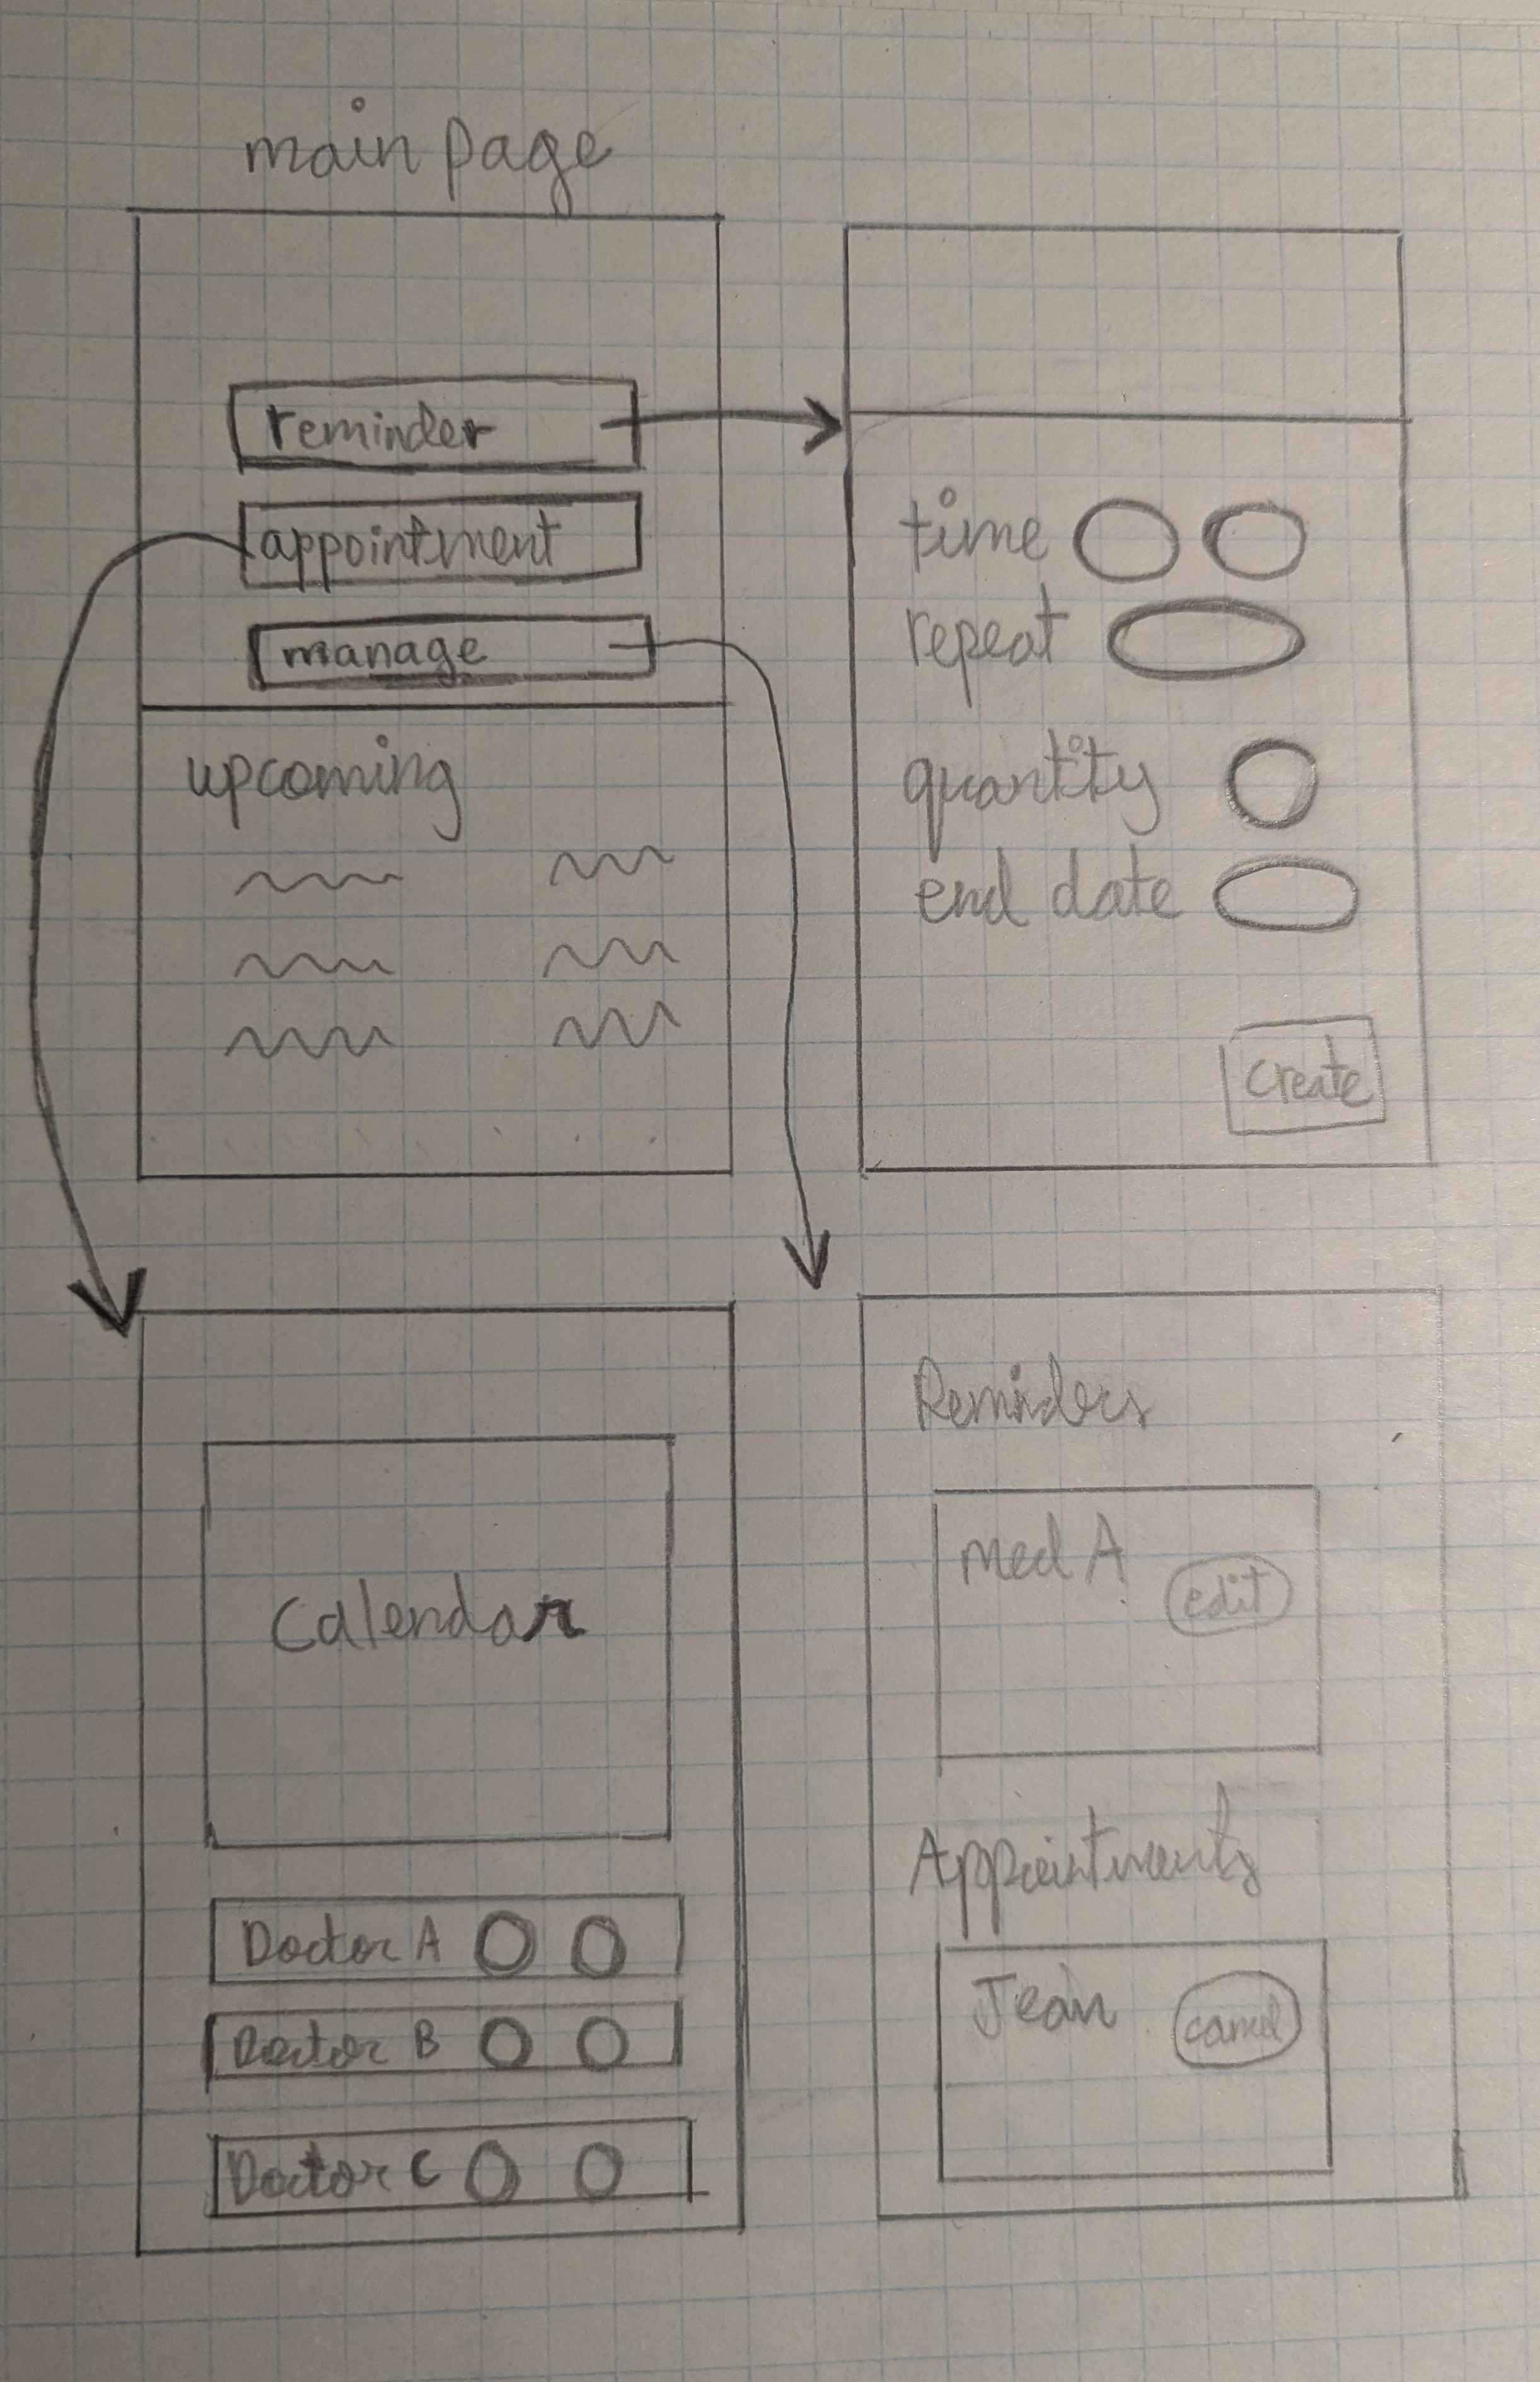 main page
reminder
appointment
manage
upcoming
time
repeat
quantity
end date
create
Calendar
Doctor A
Doctor B
Doctor C
Reminders
med A
edit
Appointments
Jean
cancel